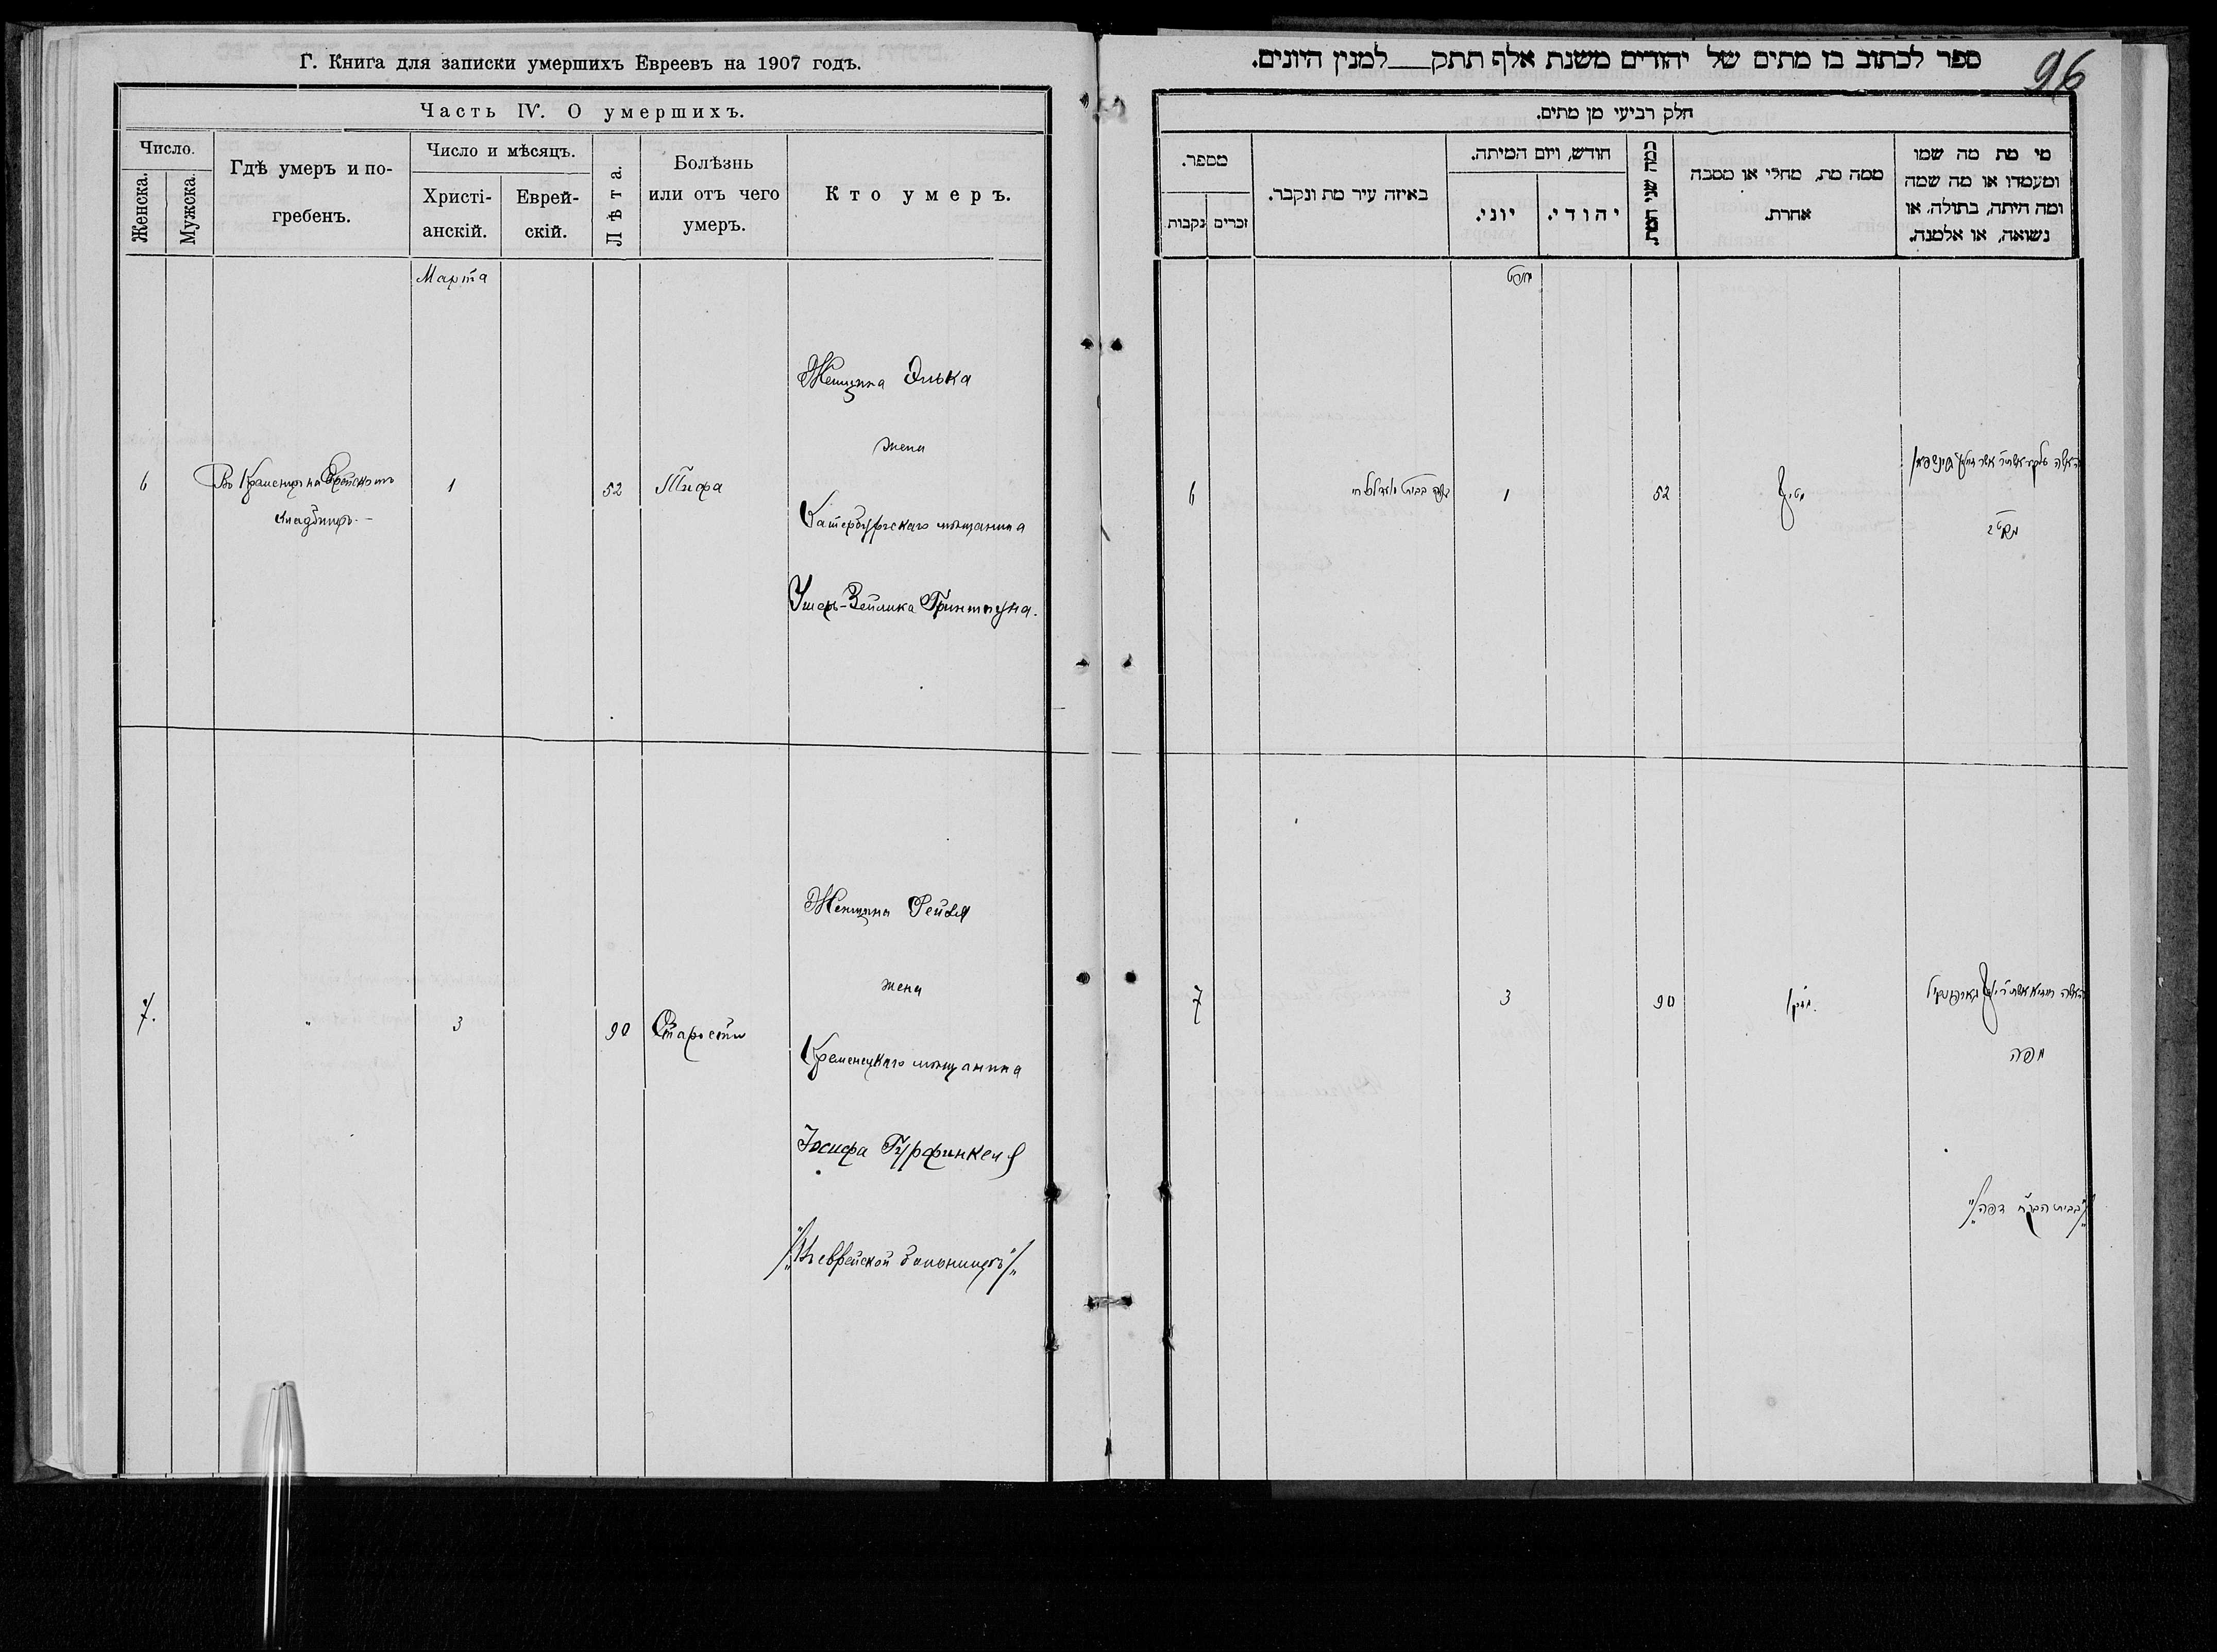 Г. Книга для записки умершихъ Евреевъ на 1907 годъ.
Часть IV. О умершихъ.
Число.
Женска.
Мужска.
Гдѣ умеръ и по-
гребенъ.
Число и мѣсяцъ.
Христі-
анскій.
Еврей-
скій.
Лѣта.
Болѣзнь
или отъ чего
умеръ.
Кто умеръ.
Марта
6
Въ Кременцѣ на Еврейскомъ
кладбищѣ.
1
52
Тифа
Женщина Элька
жена
Катербургскаго мѣщанина
Ушеръ-Зейлика
7.
"
3
90
Старости
Женщина Рейзя
жена
Кременецкаго мѣщанина
Іосифа Гурфинкеля
/"Въ еврейской больницѣ"/
ספר לכתוב בו מתים של יהודים משנת אלף תתק — למנין היונים.
96
חלק רביעי מן מתים.
מספר.
נקבות
זכרים
באיזה עיר מת ונקבר.
חודש, ויום המיתה.
יוני.
יהודי.
כמה שני המת.
ממה מת, מחלי או מסבה
אחרת.
מי מת מה שמו
ומעמדו או מה שמה
ומה היתה, בתולה, או
נשואה, או אלמנה.
מארט
6
1
52
טיף
האשה
7
3
90
זקן.
האשה
מפה